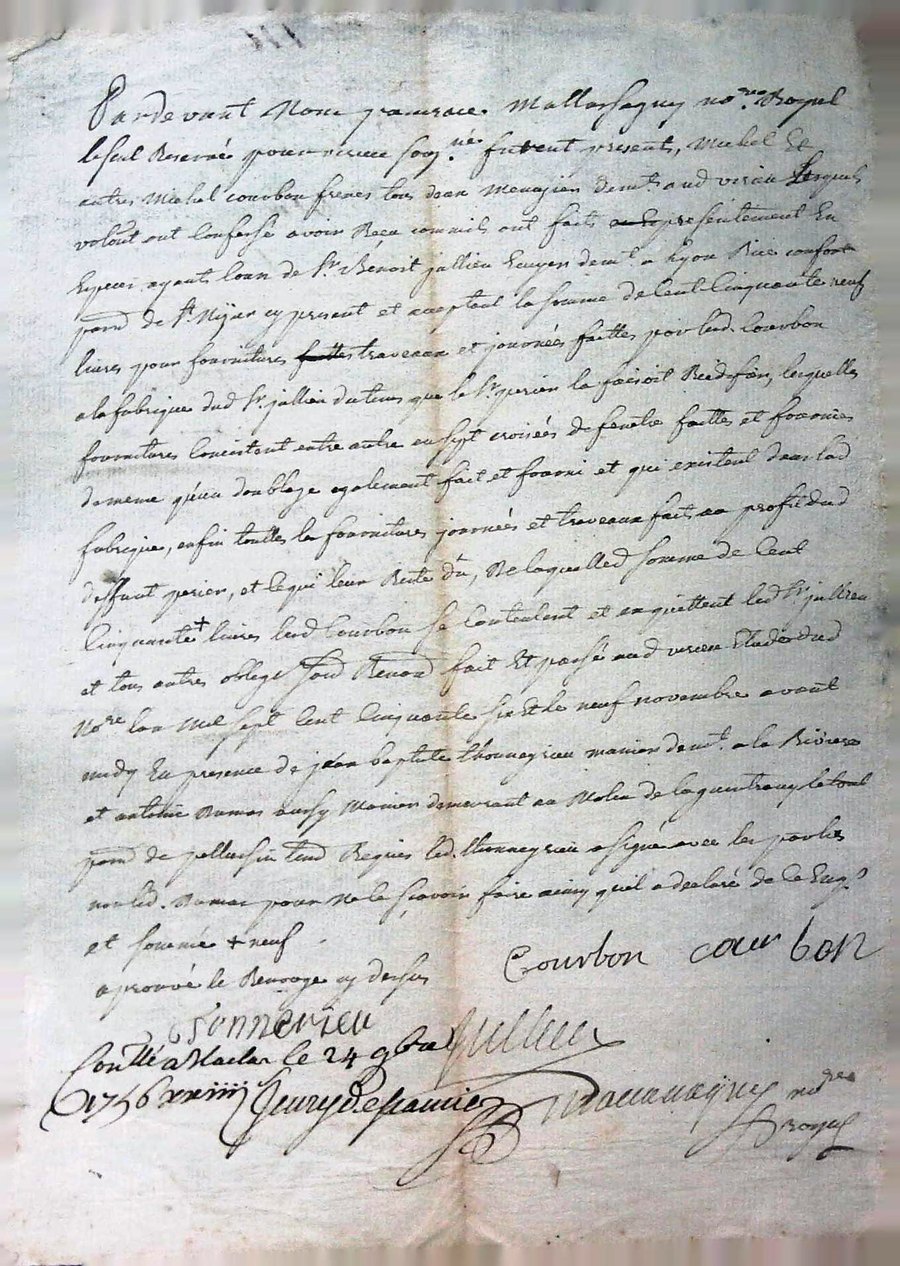 Pardevant Nous Mallassagny no.re Royal
le seul Reservé pour virieu soy.né furent presents, Michel Et
autres Michel courbon freres tous deux Menagiers dem.ts aud virieu Lesquels
volont ont Confessé avoir Receu comm'ils ont fait presentement En
Especes ayants Cours de S.r Benoit jullien Ecuyer dem.t a Lyon Rüe confort
paroisse de S.t Nizier cy present et aceptant la somme de Cent Cinquante neuf
livres pour fournitures traveaux et journées faittes par led. Courbon
a la fabrique dud S.r jullien du tems que le S.r perier la faisoit lesquelles
fournitures Concistent entre autre en sept croisées de fenetre faittes et fournies
de meme qu'un doublage egalement fait et fourni et qui existent dans lad
fabrique, enfin touttes les fournitures journées et traveaux faits au profit dud
deffunt perier, et ce qui leur Reste dû, De laquelle d somme de Cent
Cinquante + livres lesd Courbon se Contentent et en quittent led S.r jullien
et tous autres obligé fait Et passé aud virieu Etude dud
No.re l'an Mil sept Cent Cinquante six Et le neuf novembre avant
midy En presence de jean baptiste thonnerieu dem.t a la Riviere
et antoine Dumas aussy demeurant au Molin de
paroisse de pellussin temd Requis led. thonnerieu a signé avec les parties
non led. Dumas pour Ne le sçavoir faire ainsy qu'il a declaré de ce Enq.s
et sommé + neuf
aprouvé le Renvoye cy dessus
Courbon courbon
tonnerieu
Jullien
Con.llé a Maclas le 24 9bre
1756 xxiiij s
no.re
royal